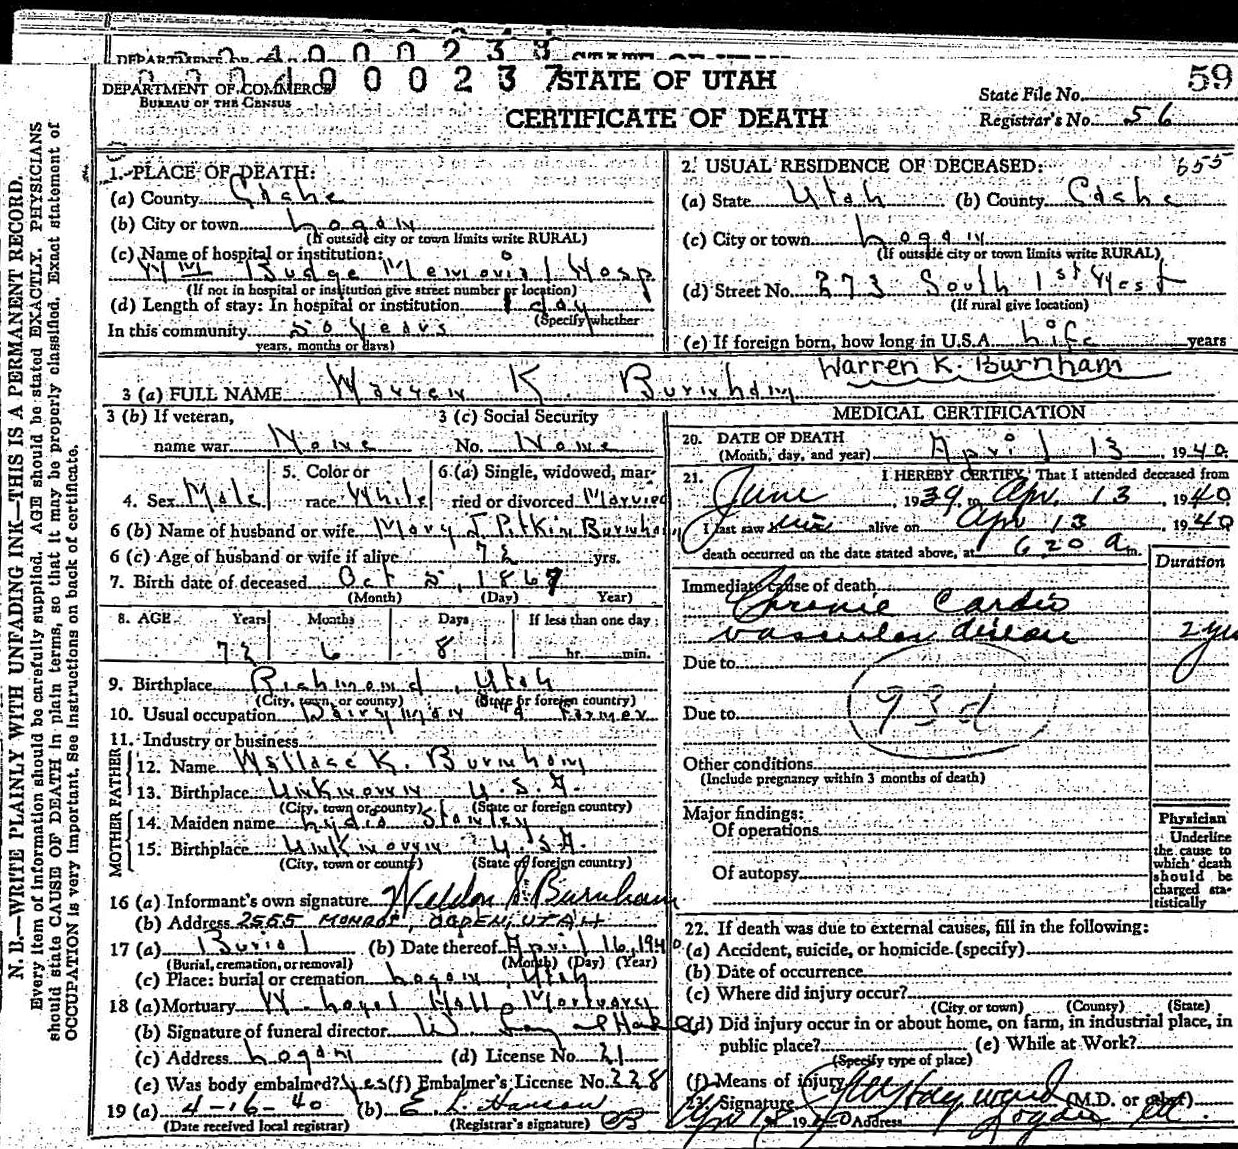 0040000237
DEPARTMENT OF COMMERCE
BUREAU OF THE CENSUS
STATE OF UTAH
CERTIFICATE OF DEATH
59
State File No.
Registrar's No. 56
655
N. B.—WRITE PLAINLY WITH UNFADING INK—THIS IS A PERMANENT RECORD.
Every item of information should be carefully supplied. AGE should be stated EXACTLY. PHYSICIANS
should state CAUSE OF DEATH in plain terms, so that it may be properly classified. Exact statement of
OCCUPATION is very important. See instructions on back of certificate.
1. PLACE OF DEATH:
(a) County Cache
(b) City or town Logan
(If outside city or town limits write RURAL)
(c) Name of hospital or institution:
Wm Budge Memorial Hosp
(If not in hospital or institution give street number or location)
(d) Length of stay: In hospital or institution 1 day
(Specify whether
In this community 50 years
years, months or days)
2. USUAL RESIDENCE OF DECEASED:
(a) State Utah (b) County Cache
(c) City or town Logan
(If outside city or town limits write RURAL)
(d) Street No. 273 South 1st West
(If rural give location)
(e) If foreign born, how long in U.S.A. Life years
3 (a) FULL NAME Warren K. Burnham Warren K. Burnham
3 (b) If veteran,
name war None
3 (c) Social Security
No. None
4. Sex Male
5. Color or
race White
6.(a) Single, widowed, mar-
ried or divorced Married
6 (b) Name of husband or wife Mary J Pitkin Burnham
6 (c) Age of husband or wife if alive 72 yrs.
7. Birth date of deceased Oct 5, 1867
(Month) (Day) Year)
8. AGE Years Months Days If less than one day
72 6 8 hr. min.
9. Birthplace Richmond, Utah
(City, town, or county) (State or foreign country)
10. Usual occupation Dairyman & Farmer
11. Industry or business
FATHER
12. Name Wallace K. Burnham
13. Birthplace Unknown U.S.A.
(City, town or county) (State or foreign country)
MOTHER
14. Maiden name Lydia Stanley
15. Birthplace Unknown U.S.A.
(City, town or county) (State or foreign country)
16 (a) Informant's own signature Weldon S. Burnham
(b) Address 2565 MONROE, OGDEN, UTAH
17 (a) Burial (b) Date thereof April 16, 1940
(Burial, cremation, or removal) (Month) (Day) (Year)
(c) Place: burial or cremation Logan, Utah
18 (a) Mortuary W. Loyal Hall Mortuary
(b) Signature of funeral director W. Loyal Hall
(c) Address Logan (d) License No. 21
(e) Was body embalmed? Yes (f) Embalmer's License No. 228
19 (a) 4-16-40 (b) E L. Hanson
(Date received local registrar) (Registrar's signature)
MEDICAL CERTIFICATION
20. DATE OF DEATH
(Month, day, and year) April 13, 1940
21. I HEREBY CERTIFY, That I attended deceased from
June, 1939, to Apr. 13, 1940
I last saw him alive on Apr 13, 1940
death occurred on the date stated above, at 6 20 A m.
Duration
Immediate cause of death
Chronic Cardio
vascular disease 2 yrs
Due to
93d
Due to
Other conditions
(Include pregnancy within 3 months of death)
Major findings:
Of operations
Of autopsy
Physician
Underline
the cause to
which death
should be
charged sta-
tistically
22. If death was due to external causes, fill in the following:
(a) Accident, suicide, or homicide (specify)
(b) Date of occurrence
(c) Where did injury occur?
(City or town) (County) (State)
(d) Did injury occur in or about home, on farm, in industrial place, in
public place? (e) While at Work?
(Specify type of place)
(f) Means of injury
Signature Hayward (M.D. or other)
1940 Address Logan